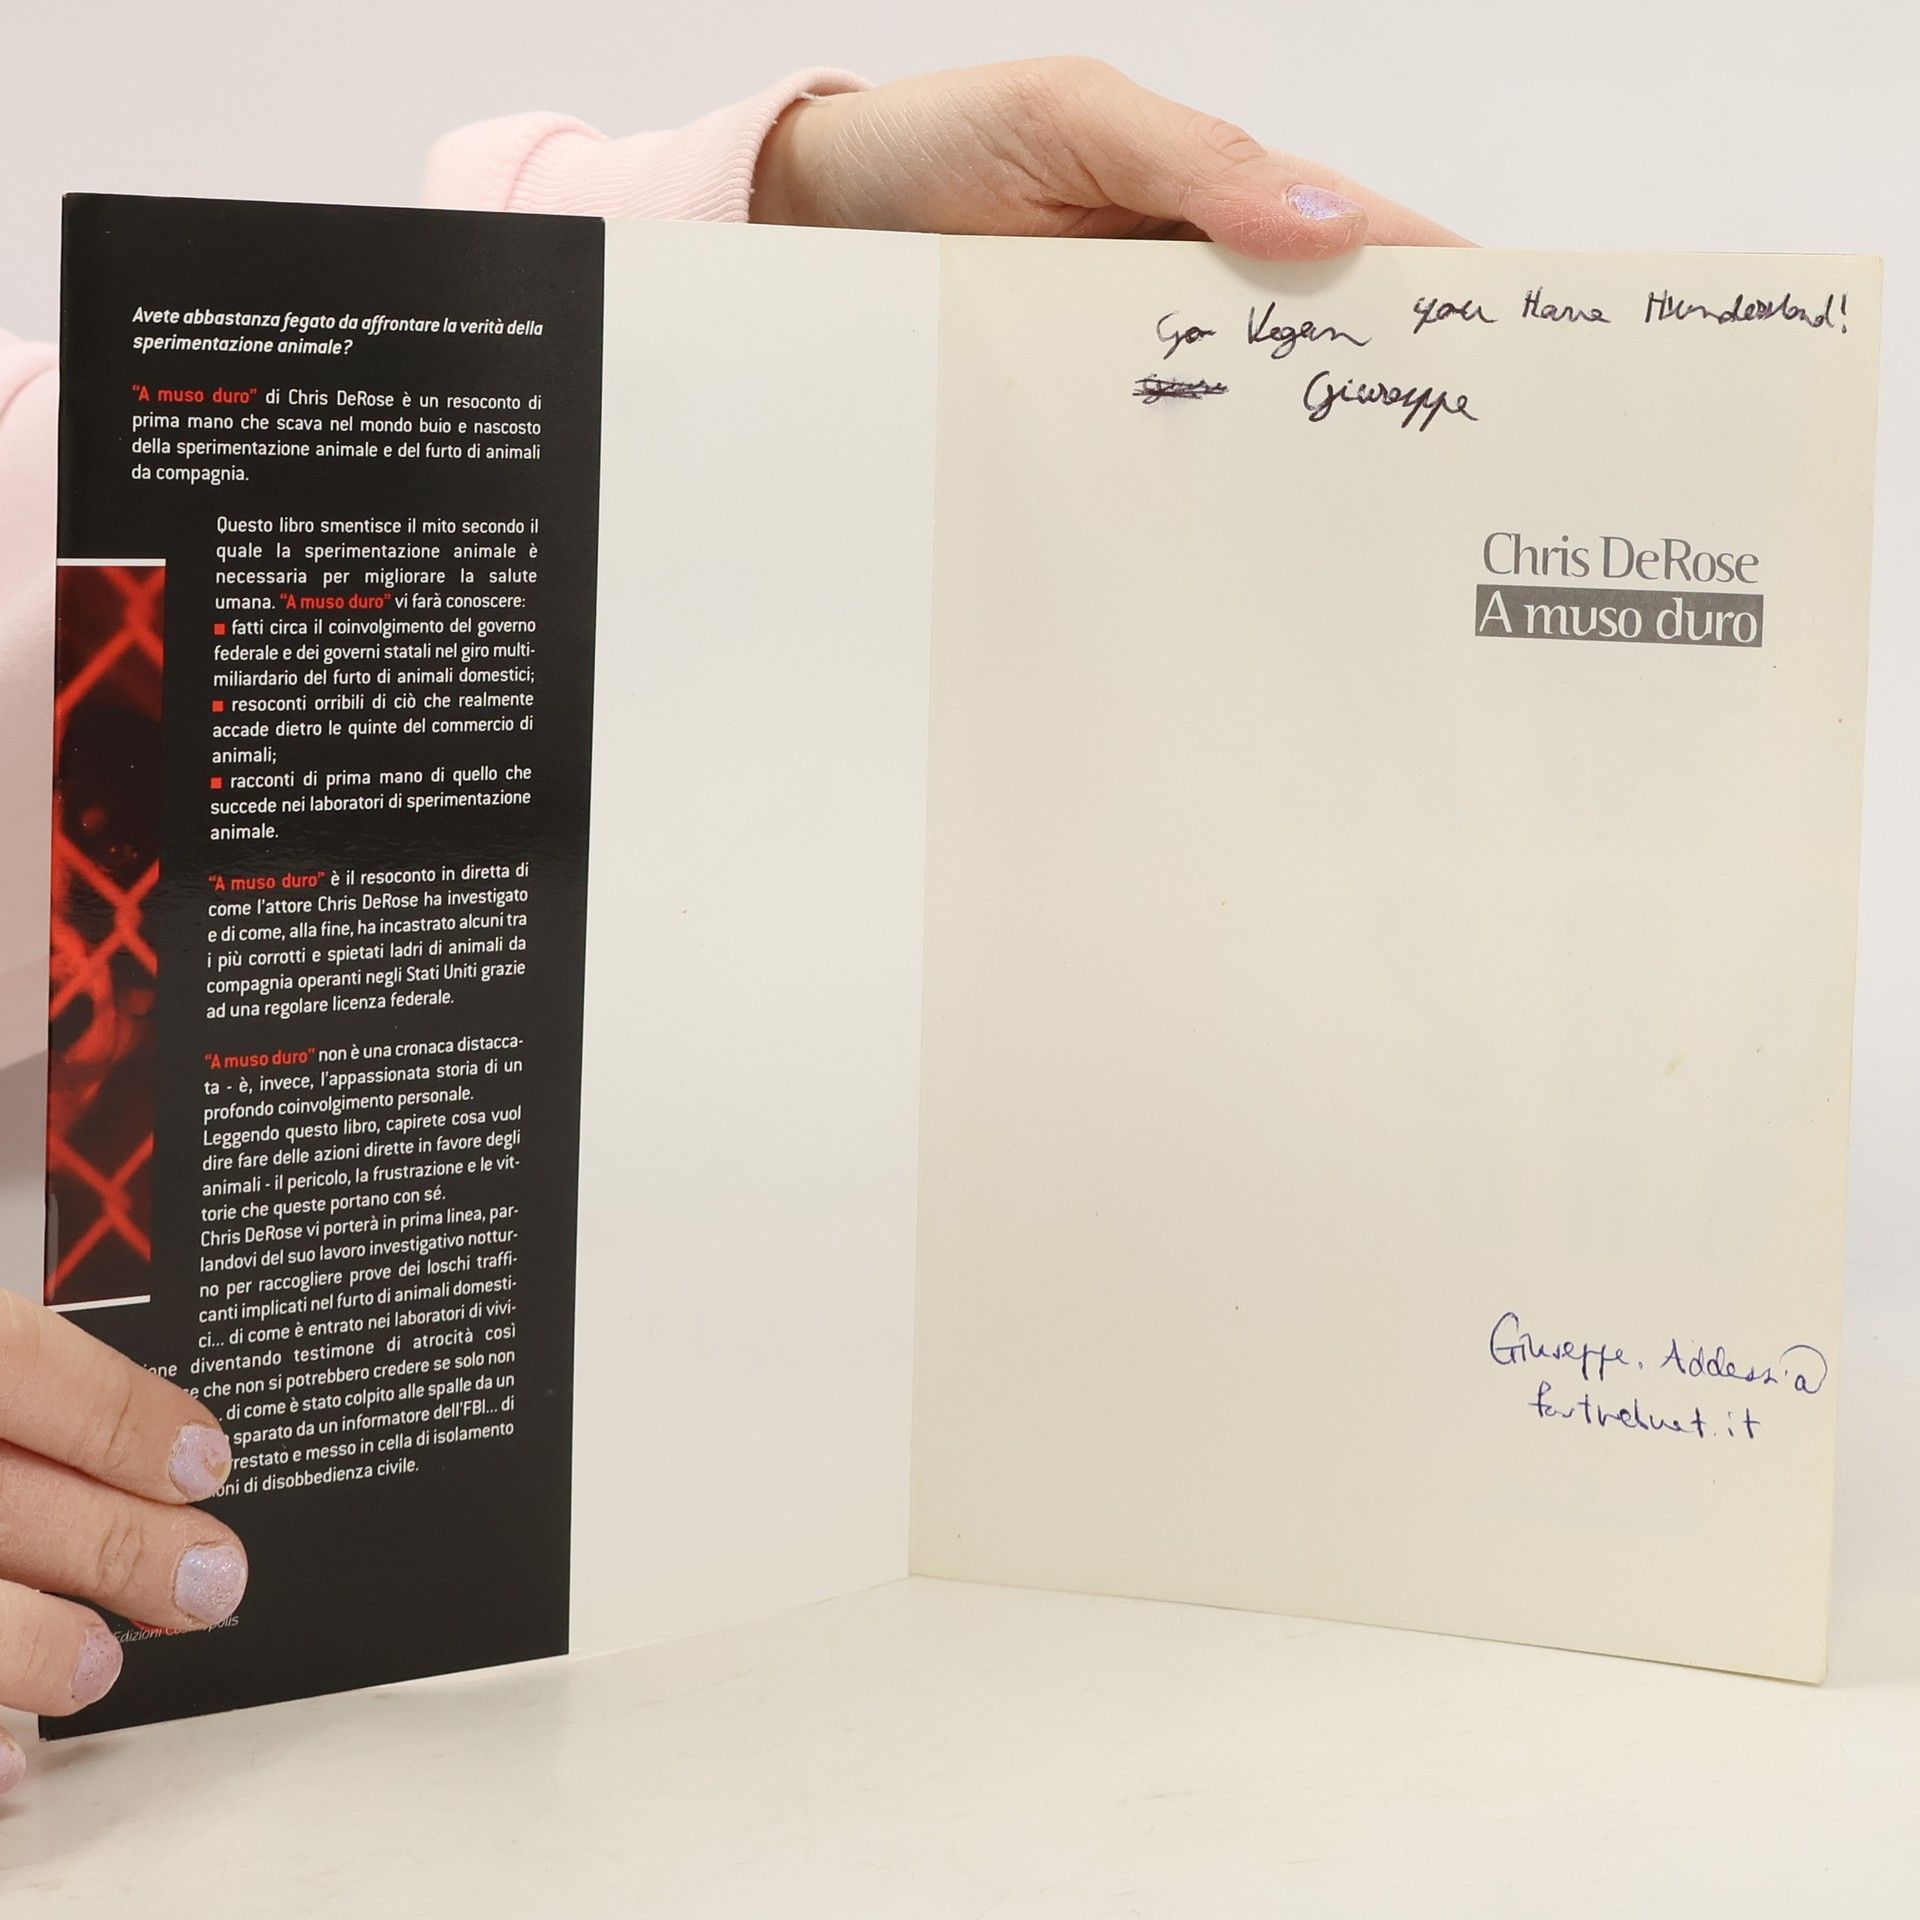 Avete abbastanza fegato da affrontare la verità della
sperimentazione animale?
"A muso duro" di Chris DeRose è un resoconto di
prima mano che scava nel mondo buio e nascosto
della sperimentazione animale e del furto di animali
da compagnia.
Questo libro smentisce il mito secondo il
quale la sperimentazione animale è
necessaria per migliorare la salute
umana. "A muso duro" vi farà conoscere:
■ fatti circa il coinvolgimento del governo
federale e dei governi statali nel giro multi-
miliardario del furto di animali domestici;
■ resoconti orribili di ciò che realmente
accade dietro le quinte del commercio di
animali;
■ racconti di prima mano di quello che
succede nei laboratori di sperimentazione
animale.
"A muso duro" è il resoconto in diretta di
come l'attore Chris DeRose ha investigato
e di come, alla fine, ha incastrato alcuni tra
i più corrotti e spietati ladri di animali da
compagnia operanti negli Stati Uniti grazie
ad una regolare licenza federale.
"A muso duro" non è una cronaca distacca-
ta - è, invece, l'appassionata storia di un
profondo coinvolgimento personale.
Leggendo questo libro, capirete cosa vuol
dire fare delle azioni dirette in favore degli
animali - il pericolo, la frustrazione e le vit-
torie che queste portano con sé.
Chris DeRose vi porterà in prima linea, par-
landovi del suo lavoro investigativo nottur-
no per raccogliere prove dei loschi traffi-
canti implicati nel furto di animali domesti-
ci... di come è entrato nei laboratori di vivi-
ione diventando testimone di atrocità così
e che non si potrebbero credere se solo non
. di come è stato colpito alle spalle da un
sparato da un informatore dell'FBI... di
rrestato e messo in cella di isolamento
oni di disobbedienza civile.
Edizioni
Go Vegan you Have
Giuseppe
Chris DeRose
A muso duro
Giuseppe.